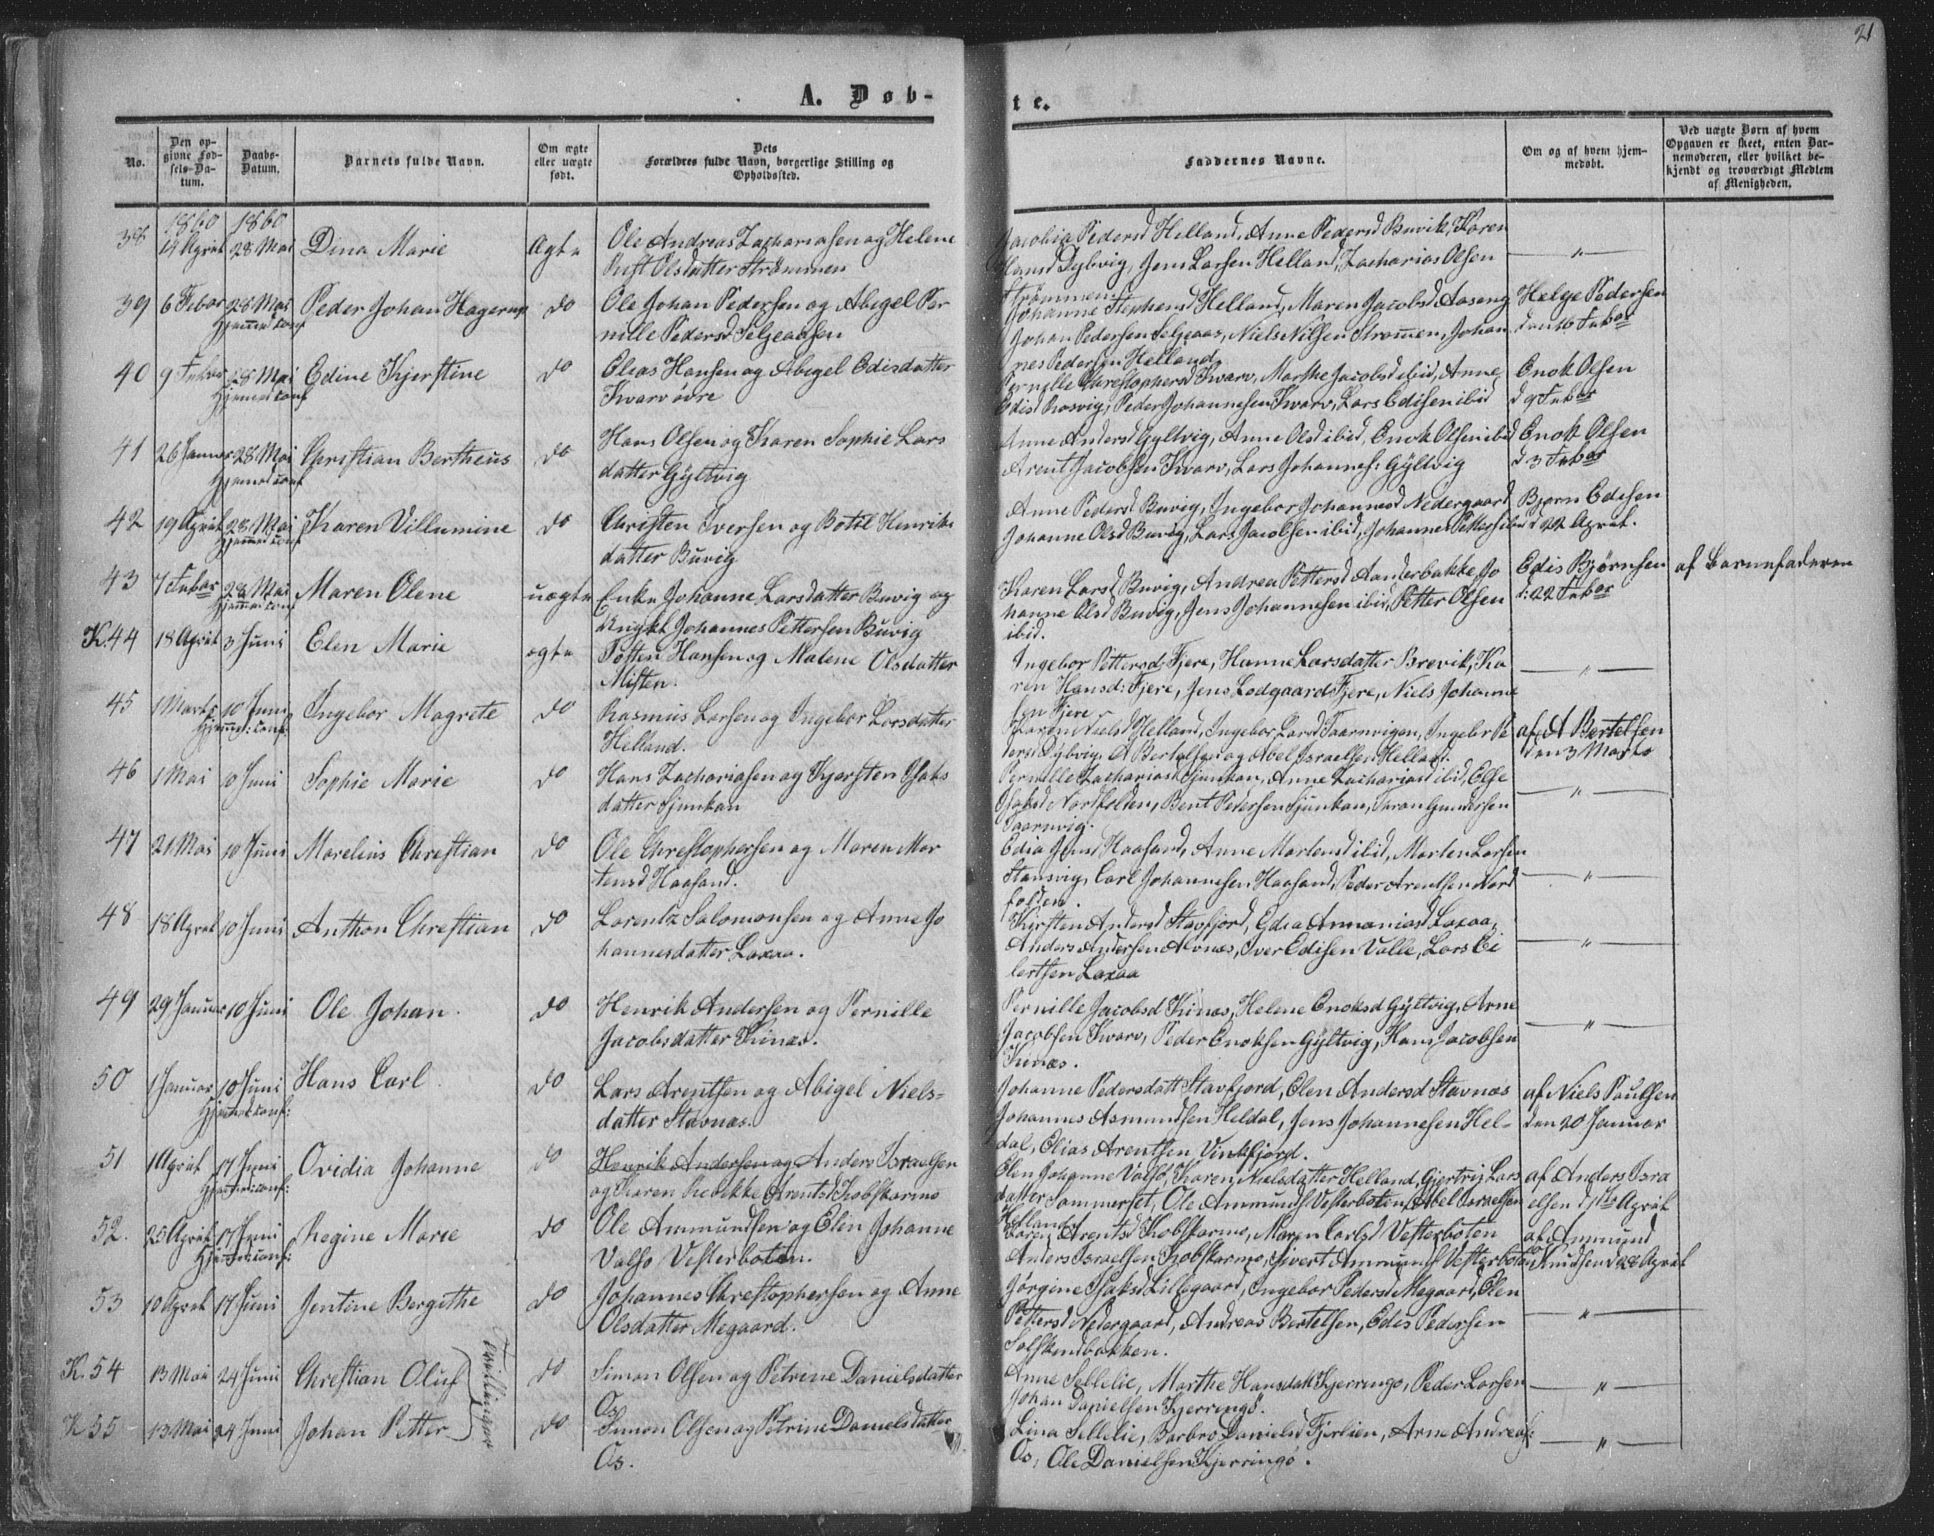 21
A. Døb-
te.
No.
Den op-
givne Fød-
sels-Da-
tum.
Daabs-
Datum.
Barnets fulde Navn.
Om ægte
eller uægte
født.
Dets
Forældres fulde Navn, borgerlige Stilling og
Opholdssted.
Faddernes Navne.
Om og af hvem hjem-
medøbt.
Ved uægte Børn af hvem
Opgaven er skeet, enten Bar-
nemoderen, eller hvilket be-
kjendt og troværdigt Medlem
af Menigheden.
1860 1860
38 14 April 28 Mai Dina Marie Ægte Ole Andreas Zachariasen og Helene
Olsdatter Strømmen
Jacobia Pedersd Helland, Anne Pedersd Buvik, Karen
Hansd Dybvig, Jens Larsen Helland, Zacharias Olsen
Strømmen
39 6 Febar 28 Mai Peder Johan Hagerup do Ole Johan Pedersen og Abigel Per
Hjemed: conf
nille Pedersd Seljeaasen
Johanne Stephensd Helland, Maren Jacobsd Aaseng Helge Pedersen
Johan Pedersen Seljeaas, Niels Nilsen Strømen, Johan den 16 Febar
nes Pedersen Helland
40 9 Febar 28 Mai Edine Kjerstine do Elias Hansen og Abigel Edisdatter
Hjemed conf
Kvarv øvre
Pernille Christophersd Kvarv, Marthe Jacobsd ibid, Anne Enok Olsen
Edisd Rosvig, Peder Johannesen Kvarv, Lars Edisen ibid d 9 Febar
41 26 Januar 28 Mai Christian Bertheus do Hans Olsen og Karen Sophie Lars
Hjemed conf
datter Gyltvig
Anne Andersd Gyltvig, Anne Olsd ibid, Enok Olsen ibid Enok Olsen
Arent Jacobsen Kvarv, Lars Johannes: Gyltvig d 3 Febar
42 19 April 28 Mai Karen Villumine do Christen Iversen og Botil Henriks
Hjemed conf
datter Buvig
Anne Pedersd Buvig, Ingebor Johannesd Nedergaard Bjørn Edisen
Johanne Olsd Buvig, Lars Jacobsen ibid, Johannes Petters ibid d 22 April.
43 7 Febar 28 Mai Maren Olene uægte Enke Johanne Larsdatter Buvig og
Hjemed conf
Ungkl Johannes Pettersen Buvig
Karen Larsd Buvig, Andrea Pettersd Aanderbakke, Jo Edis Bjørnsen af Barnefaderen
hanne Olsd Buvig, Jens Johannesen ibid, Petter Olsen d: 22 Febar
ibid.
K. 44 18 April 3 Juni Elen Marie ægte Tosten Hansen og Malene Olsdatter
Misten.
Ingebor Pettersd: Fjere, Hanne Larsdatter Brevik, Ka
ren Hansd: Fjere, Jens Lodgaard Fjere, Niels Johanne
sen Fjere
45 1 Marts 10 Juni Ingebor Magrete do Rasmus Larsen og Ingebor Larsdatter
Hjemed: conf:
Helland.
Karen Nielsd Helland, Ingebor Larsd Taarnvigen, Ingebr Pe af A Bertelsen
dersd Dybvig, A Bertelsen og Abel Israelsen Helland. den 3 Marts
46 1 Mai 10 Juni Sophie Marie do Hans Zachariasen og Kjersten Isaks
datter Sjunkan
Pernille Zachariasd Sjunkan, Anne Zachariasd ibid, Else
Isaksd Nordfolden, Bent Pedersen Sjunkan, Gundersen
Taarnvig.
47 21 Mai 10 Juni Marelius Christian do Ole Christophersen og Maren Mar
tensd Haasand.
Edia Jensd Haasand, Anne Martensd ibid, Morten Larsen
Stansvig, Carl Johannesen Haasand, Peder Arentsen Nord
folden.
48 18 April 10 Juni Anthon Christian do Lorentz Salomonsen og Anne Jo
hannesdatter Laxaa.
Kjersten Andersd Stavfjord, Edia Annaniasd Laxaa,
Anders Andersen Alvnæs, Iver Edisen Valle, Lars Ei
lertsen Laxaa
49 29 Januar 10 Juni Ole Johan. do Henrik Andersen og Pernille
Jacobsdatter Kinæs.
Pernille Jacobsd Kinæs, Helene Enoksd Gyltvig, Arne
Jacobsen Kvarv, Peder Enoksen Gyltvig, Hans Jacobsen
Kinæs.
50 1 Januar 10 Juni Hans Carl. do Lars Arentsen og Abigel Niels-
Hjemed: conf:
datter Stavnæs.
Johanne Pedersdatt Stavfjord, Elen Andersd Stavnæs af Niels Paulsen
Johannes Asmundsen Heldal, Jens Johannesen Hel- den 20 Januar
dal, Elias Arentsen Vinkfjord.
51 1 April 17 Juni Ovidia Johanne do Henrik Andersen og Anders Israelsen
Hjemed: conf:
og Karen Rebekke Arentsd Kobskarmo
Elen Johanne Valsø, Karen Nielsdatter Helland, Gjertru Lars af Anders Isra
datter Sommerset, Ole Ammunds Vesterbotten, Abel Israelsen elsen d 1ste April
Helland
52. 25 April 17 Juni Regine Marie do Ole Ammundsen og Elen Johanne
Hjemed: conf:
Valsø Vesterbotten.
Karen Arentsd Kobskarmo, Maren Carlsd Vesterboten af Ammund
Anders Israelsen Kobskarmo, Sivert Ammunds Vesterbotten Knudsen d 28 April
53 10 April 17 Juni Jentine Bergithe do Johannes Christophersen og Anne
Olsdatter Megaard.
Jørgine Isaksd Lillegaard, Ingebor Pedersd Megaard, Elen
Pettersd Nedergaard, Andreas Bertelsen, Edis Pedersen
Solskinsbakken.
K. 54 13 Mai 24 Juni Christian Oluf do Simon Olsen og Petrine Danielsdatter
Os
Tvillinger
Anne Sellelie, Marthe Hansdatt Kjerringø, Peder Larsen
Johan Danielsen Kjerringø.
K 55 13 Mai 24 Juni Johan Petter do Simon Olsen og Petrine Danielsdatter
Os.
Lina Sellelie, Barbro Danielsd Fjerlien, Arne Andreas:
Os, Ole Danielsen Kjerringø.